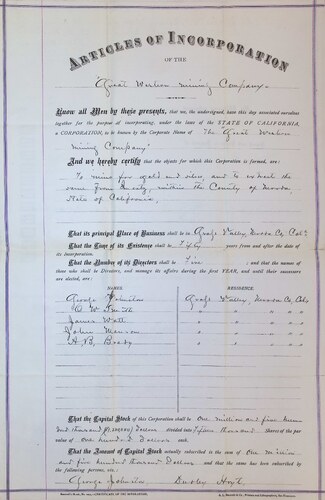 ARTICLES OF INCORPORATION
OF THE
Great Western Mining Company.
Know all Men by these presents, that we, the undersigned, have this day associated ourselves
together for the purpose of incorporating, under the laws of the STATE OF CALIFORNIA,
a CORPORATION, to be known by the Corporate Name of The Great Western
Mining Company.
And we hereby certify that the objects for which this Corporation is formed, are:
To mine for gold and silver, and to extract the
same from Quartz, within the County of Nevada
State of California.
That its principal Place of Business shall be in Grass Valley, Nevada Co, Cal
That the Time of its Existence shall be Fifty years from and after the date
of its incorporation.
That the Number of its Directors shall be Five ; and that the names of
those who shall be Directors, and manage its affairs during the first YEAR, and until their successors
are elected, are:
NAMES RESIDENCE
George Johnston Grass Valley, Nevada Co, Cala
James Watt " " "
John " " "
" " "
That the Capital Stock of this Corporation shall be One million and five hun
dred thousand Dollars divided into fifteen thousand shares of the par
value of one hundred Dollars each.
That the Amount of Capital Stock actually subscribed is the sum of One million
and five hundred thousand Dollars and that the same has been subscribed by
the following persons, viz:
George Johnston Hoyt